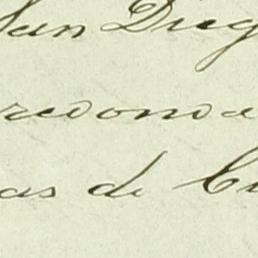 San Dieg
redonda
as de Cu